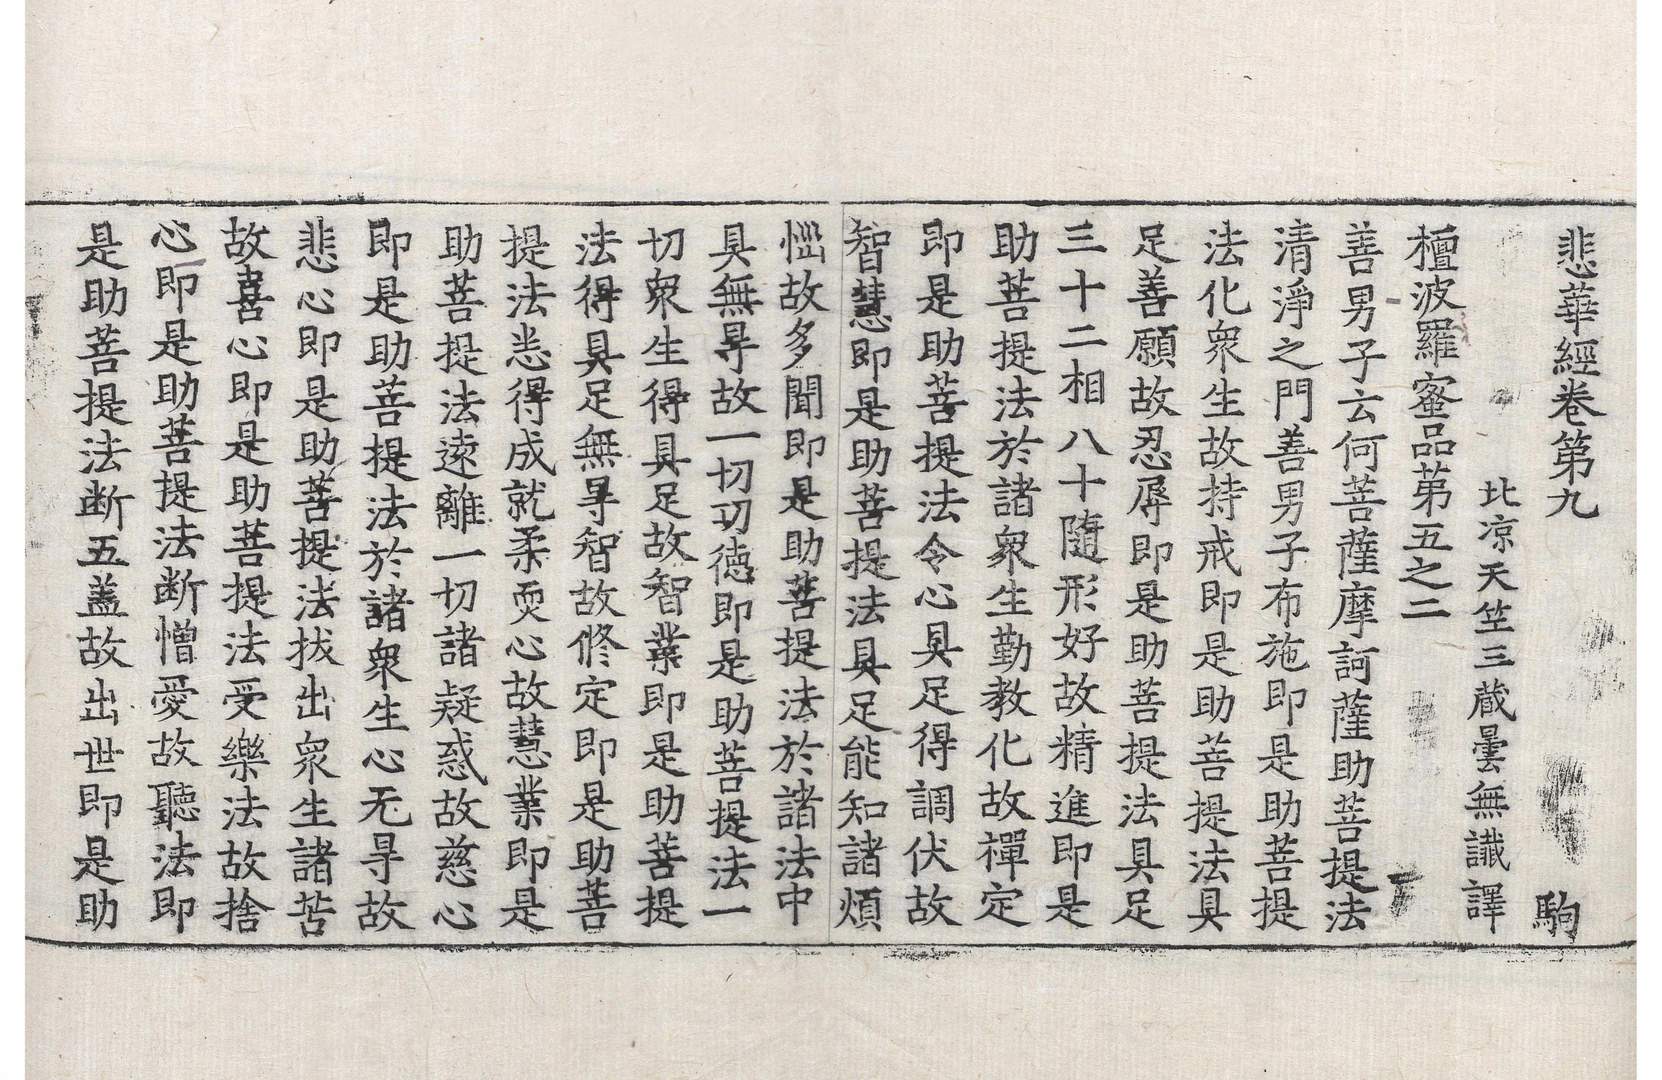 悲華經卷第九 駒
北凉天竺三蔵曇無讖譯
檀波羅蜜品苐五之二
善男子云何菩薩摩訶薩助菩提法
清淨之門善男子布施即是助菩提
法化衆生故持戒即是助菩提法具
足善願故忍辱即是助菩提法具足
三十二相八十隨形好故精進即是
助菩提法於諸衆生勤教化故禪定
即是助菩提法令心具足得調伏故
智慧即是助菩提法具足能知諸煩
惱故多聞即是助菩提法於諸法中
具無㝵故一切功德即是助菩提法一
切衆生得具足故智業即是助菩提
法得具足無㝵智故修定即是助菩
提法悉得成就柔耎心故慧業即是
助菩提法遠離一切諸疑惑故慈心
即是助菩提法於諸衆生心无㝵故
悲心即是助菩提法拔出衆生諸苦
故喜心即是助菩提法受樂法故捨
心即是助菩提法断憎愛故聽法即
是助菩提法断五蓋故出世即是助